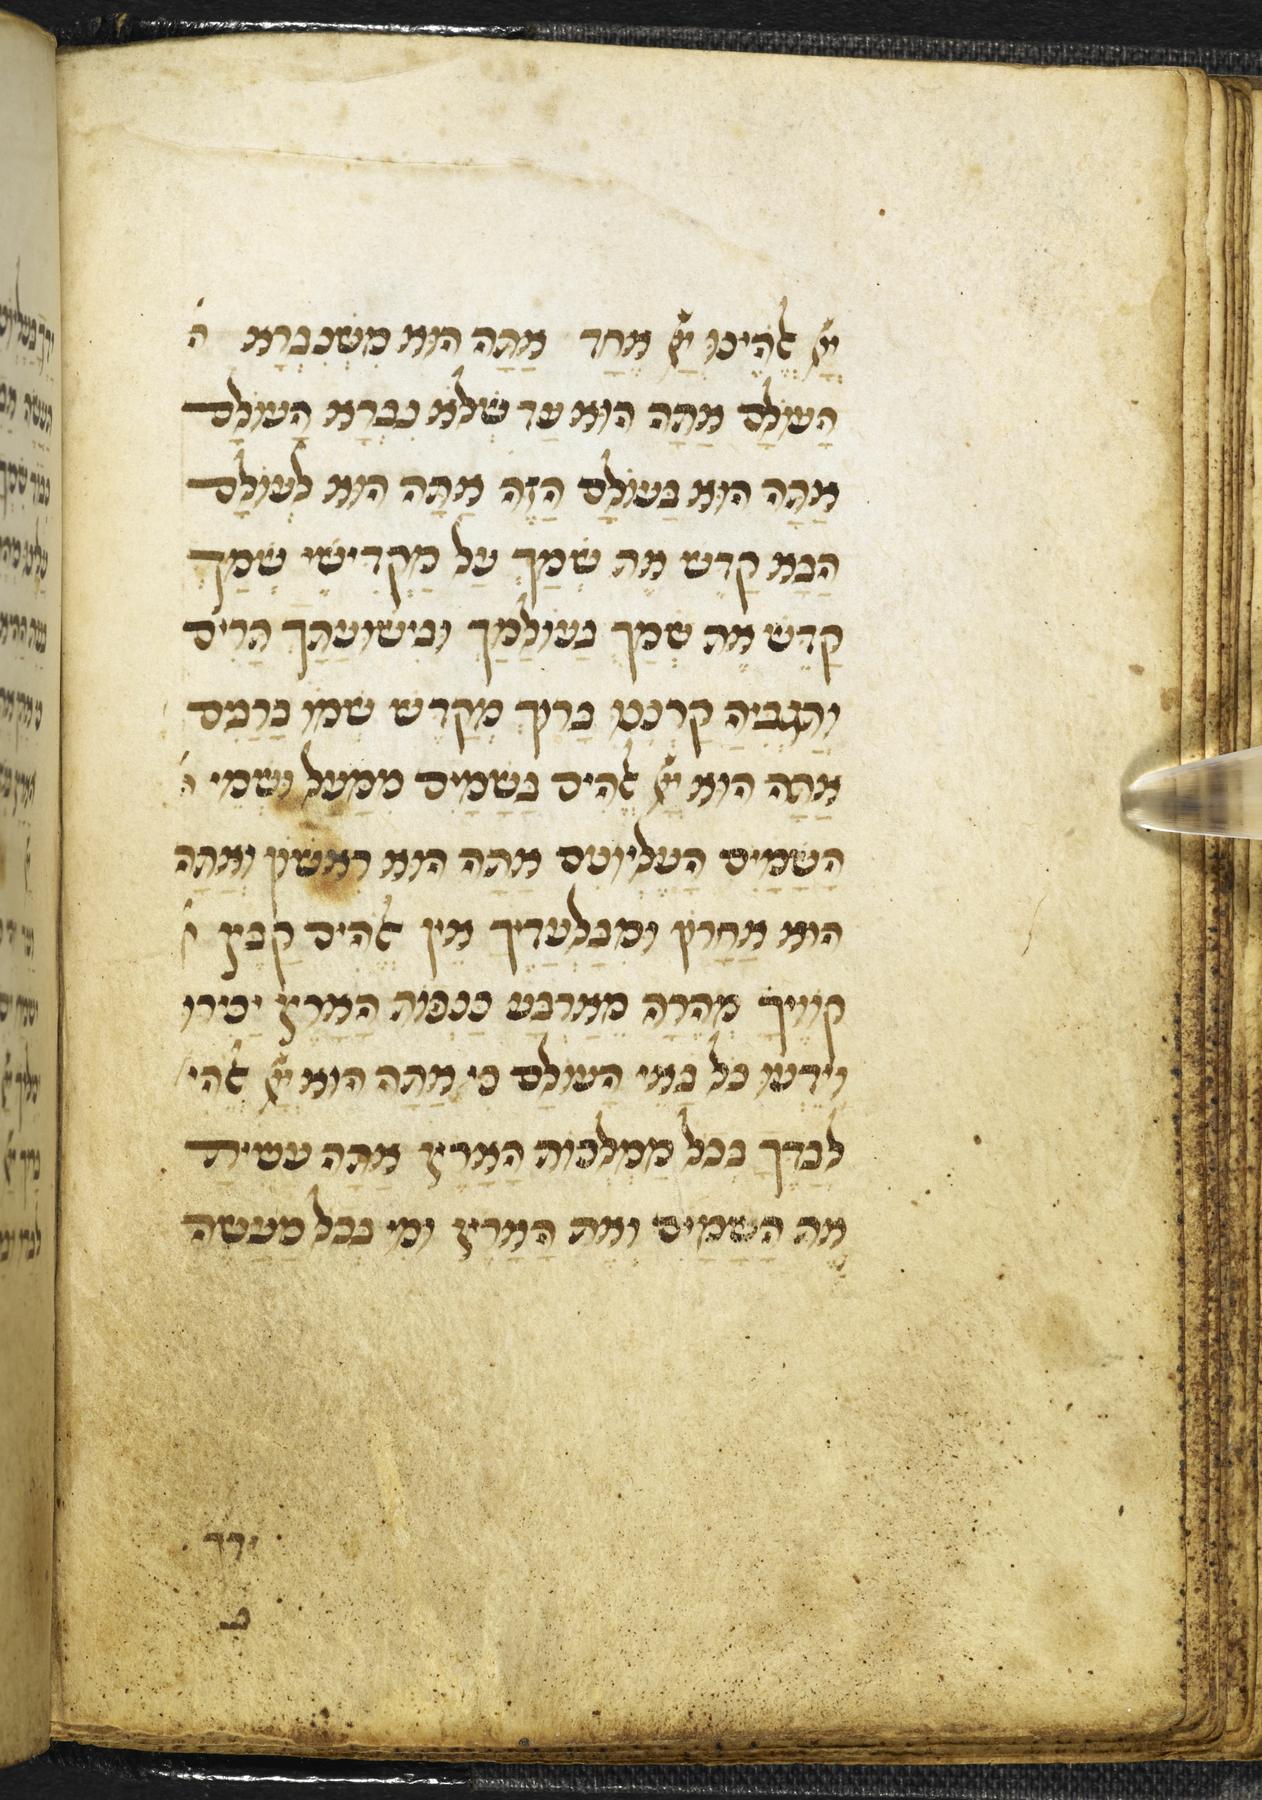 יְיָ אֱלֹהֵינוּ יְיָ אֶחָד אַתָּה הוּא מִשֶּׁנִּבְרָא ה
הָעוֹלָם אַתָּה הוּא עַד שֶׁלֹּא נִבְרָא הָעוֹלָם
אַתָּה הוּא בָּעוֹלָם הַזֶּה אַתָּה הוּא לְעוֹלָם
הַבָּא קַדֵּשׁ אֶת שְׁמָךְ עַל מַקְדִּישֵׁי שְׁמָךְ
קַדֵּשׁ אֶת שְׁמָךְ בְּעוֹלָמָךְ וּבִישׁוּעָתָךְ תָּרִים
וְתַגְבִּיהַּ קַרְנֵנוּ בָּרוּךְ מְקַדֵּשׁ שְׁמוֹ בָּרַבִּים
אַתָּה הוּא יְיָ אֱלֹהִים בַּשָּׁמַיִם מִמַּעַל וּשְׁמֵי ה
הַשָּׁמַיִם הָעֶלְיוֹנִים אַתָּה הוּא רִאשׁוֹן וְאַתָּה
הוּא אַחֲרוֹן וּמִבַּלְעָדֶיךָ אֵין אֱלֹהִים קַבֵּץ ק
קוֹוֶיךָ מְהֵרָה מֵאַרְבַּע כַּנְפוֹת הָאָרֶץ יַכִּירוּ
וְיֵדְעוּ כָּל בָּאֵי הָעוֹלָם כִּי אַתָּה הוּא יְיָ אֱלֹהי
לְבַדְּךָ בְּכָל מַמְלְכוֹת הָאָרֶץ אַתָּה עָשִׂיתָ
אֶת הַשָּׁמַיִם וְאֶת הָאָרֶץ וּמִי בְּכָל מַעֲשֵׂה
ידך